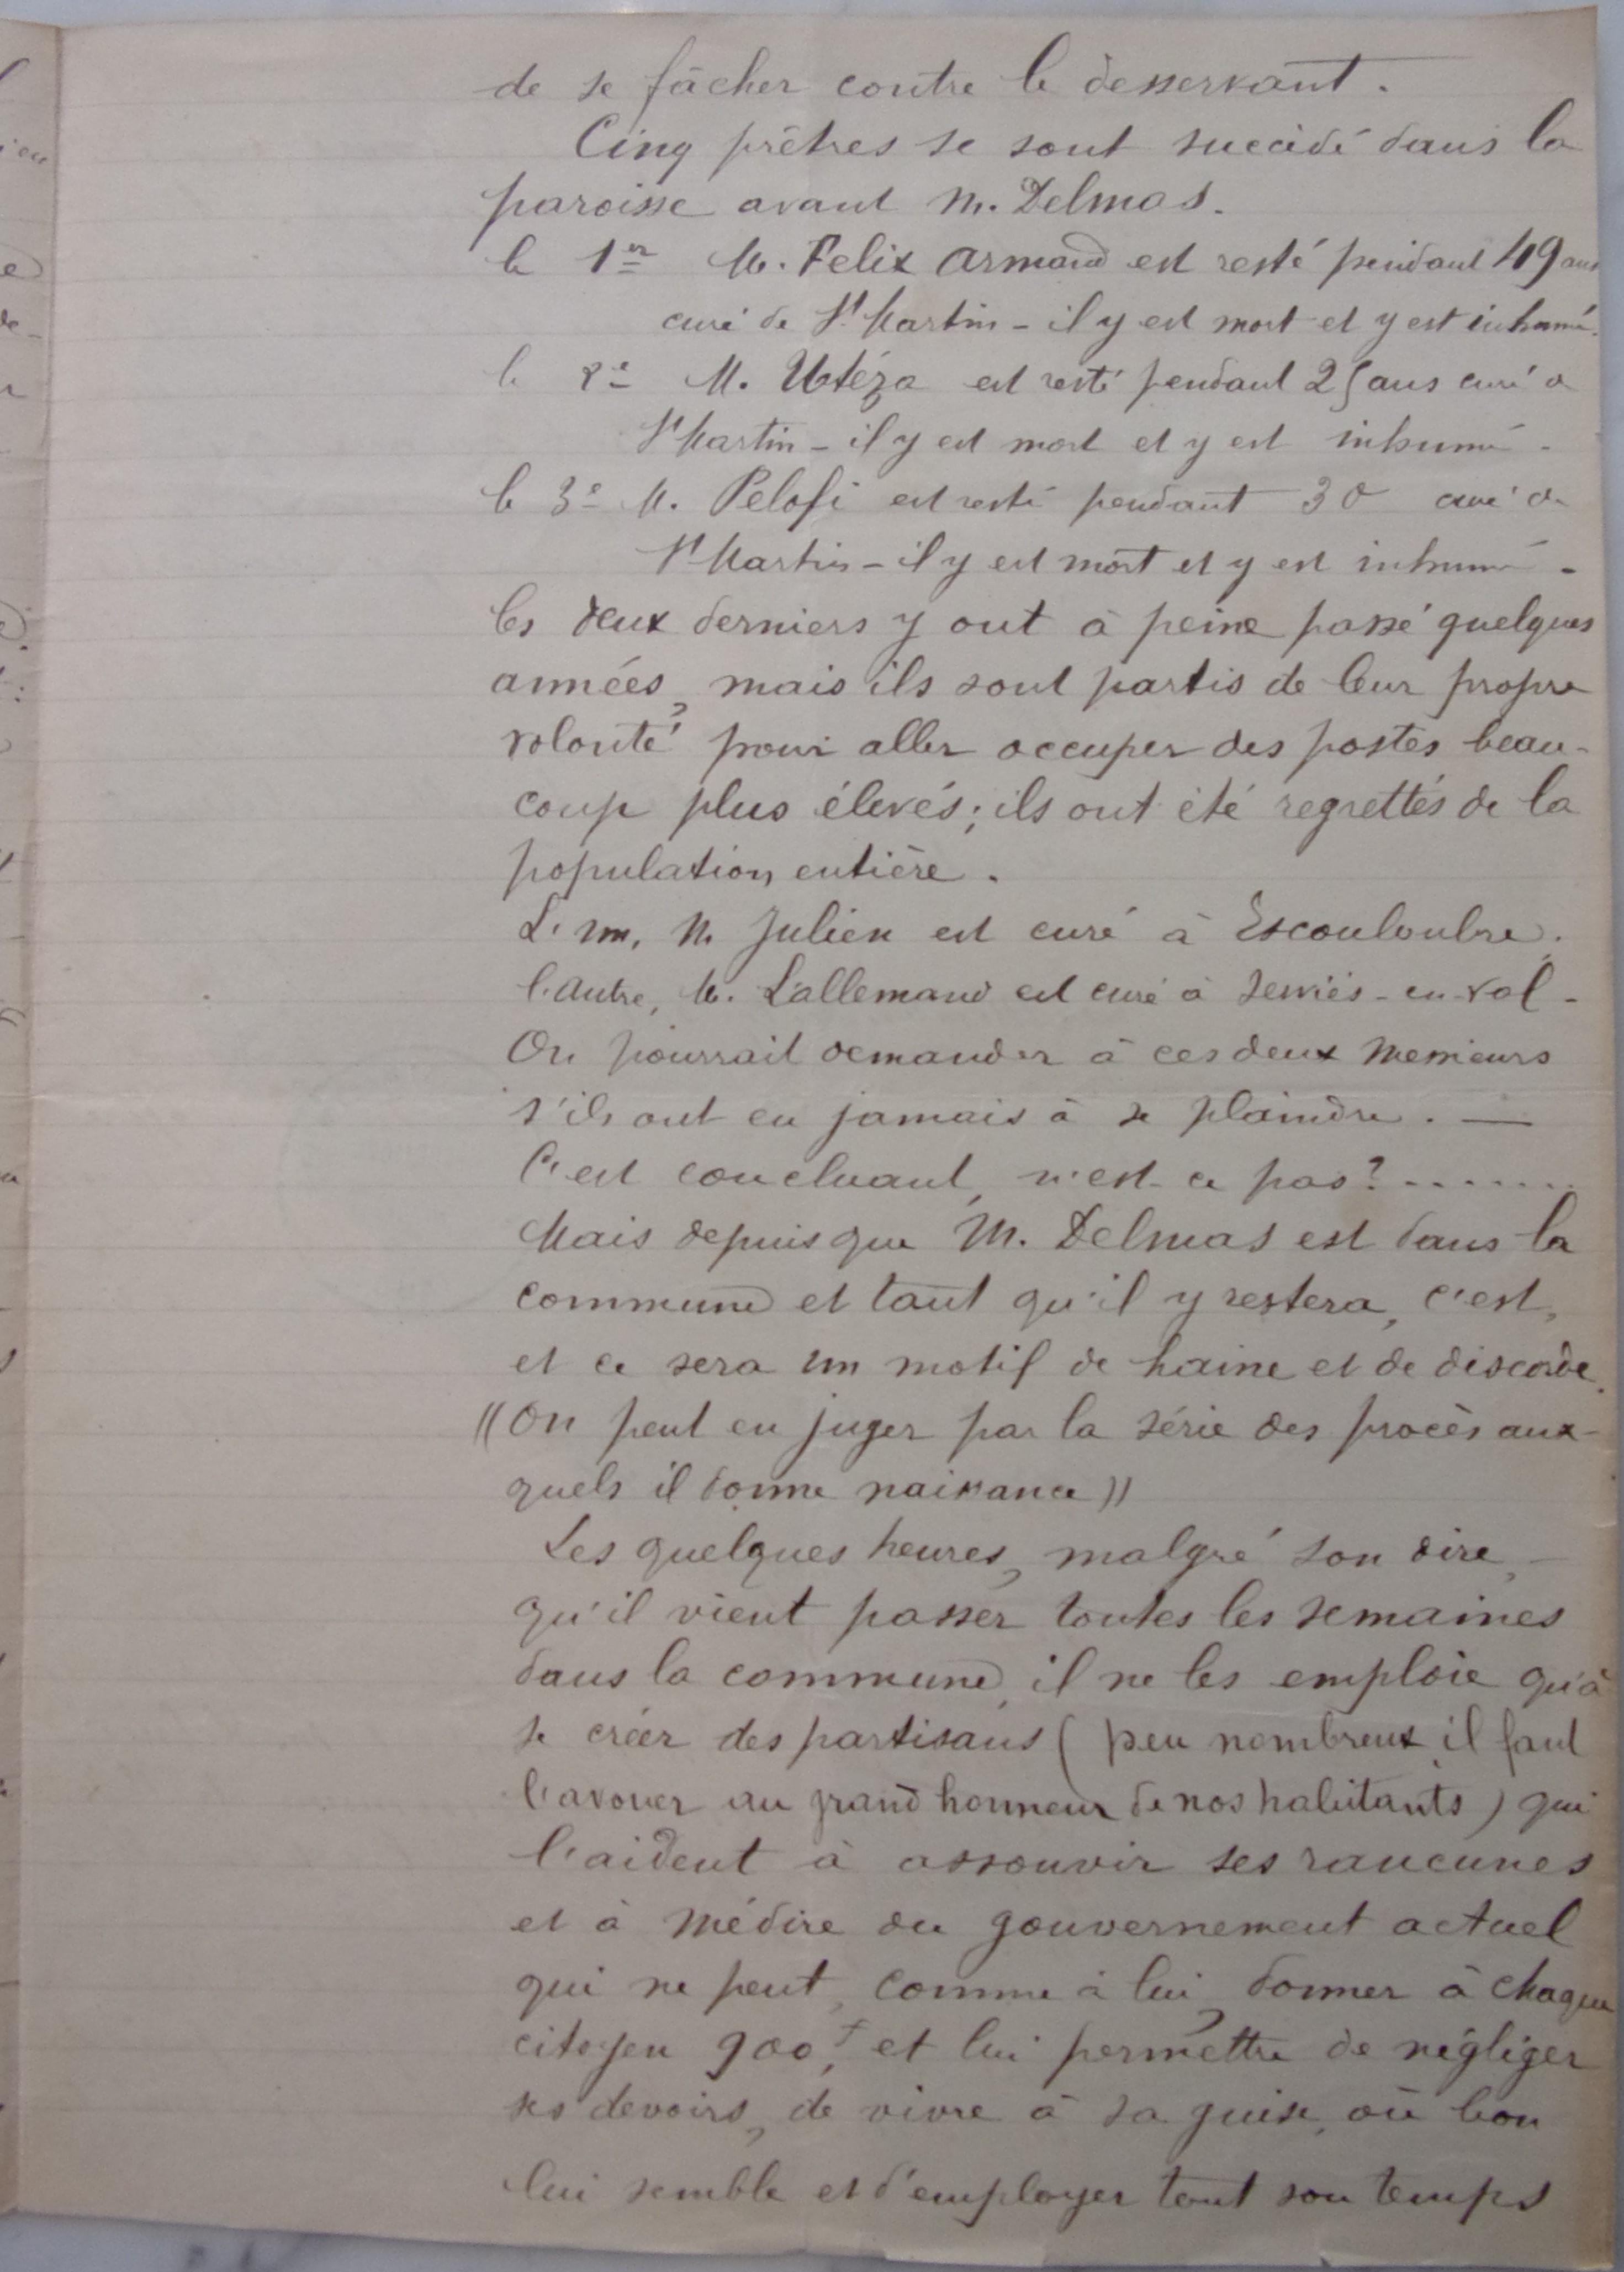 de se fâcher contre le desservant.
Cinq prêtres se sont succédé dans la
paroisse avant M. Delmas.
le 1er M. Felix Armand est resté pendant 49 ans
curé de St Martin - il y est mort et y est inhumé.
le 2e M. Utéza est resté pendant 25 ans curé à
St Martin - il y est mort et y est inhumé -
le 3e M. Pelofi est resté pendant 30 curé de
St Martin - il y est mort et y est inhumé -
les deux derniers y ont à peine passé quelques
années, mais ils sont partis de leur propre
volonté pour aller occuper des postes beau-
coup plus élevés; ils ont été regrettés de la
population entière.
L'un, M. Julien est curé à Escouloubre;
l'autre, M. Lallemand est curé à Serviès-en-val -
On pourrait demander à ces deux messieurs
s'ils ont eu jamais à se plaindre. —
C'est concluant, n'est-ce pas? .......
Mais depuis que M. Delmas est dans la
commune et tant qu'il y restera, c'est,
et ce sera un motif de haine et de discorde.
((On peut en juger par la série des procès aux-
quels il donne naissance))
Les quelques heures, malgré son dire, -
qu'il vient passer toutes les semaines
dans la commune, il ne les emploie qu'à
se créer des partisans (peu nombreux il faut
l'avouer au grand honneur de nos habitants) qui
l'aident à assouvir ses rancunes
et à médire du gouvernement actuel
qui ne peut, comme à lui, donner à chaque
citoyen 900f, et lui permettre de négliger
ses devoirs, de vivre à sa guise, où bon
lui semble et d'employer tout son temps